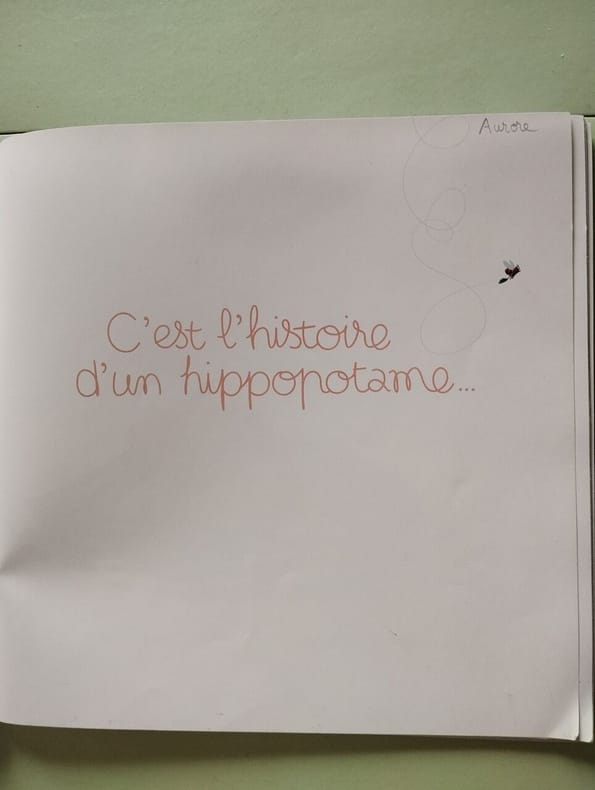 Aurore
C'est l'histoire
d'un hippopotame...